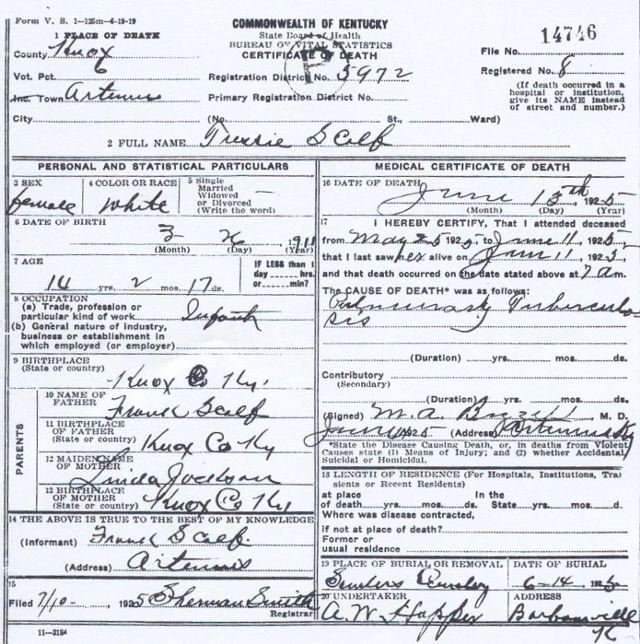 Form V. S. 1-125m-6-19-19
COMMONWEALTH OF KENTUCKY
State Board of Health
BUREAU OF VITAL STATISTICS
CERTIFICATE OF DEATH
14746
File No.
Registered No. 8
(If death occurred in a hospital or institution, give its NAME instead of street and number.)
1 PLACE OF DEATH
County Knox
Vot. Pct. 6
Registration District No. 5972
Inc. Town Artemus
Primary Registration District No.
City (No. St., Ward)
2 FULL NAME Tressie Scalf
PERSONAL AND STATISTICAL PARTICULARS
3 SEX
female
4 COLOR OR RACE
White
5 Single
Married
Widowed
or Divorced
(Write the word)
6 DATE OF BIRTH
3 1911
(Month) (Day) (Year)
7 AGE
14 yrs. 2 mos. 17 ds.
IF LESS than 1
day hrs.
or min.?
8 OCCUPATION
(a) Trade, profession or
particular kind of work Infant
(b) General nature of industry,
business or establishment in
which employed (or employer)
9 BIRTHPLACE
(State or country)
Knox Co Ky.
PARENTS
10 NAME OF
FATHER
Frank Scalf
11 BIRTHPLACE
OF FATHER
(State or country) Knox Co Ky
12 MAIDEN NAME
OF MOTHER
Linda Jackson
13 BIRTHPLACE
OF MOTHER
(State or country) Knox Co Ky
14 THE ABOVE IS TRUE TO THE BEST OF MY KNOWLEDGE
(Informant) Frank Scalf
(Address) Artemus
15
Filed 7/10- 1925 Sherman Smith
Registrar
11-3184
MEDICAL CERTIFICATE OF DEATH
16 DATE OF DEATH June 13th 1925
(Month) (Day) (Year)
17 I HEREBY CERTIFY, That I attended deceased
from May 25 192, to June 11, 1925,
that I last saw her alive on June 11, 1925,
and that death occurred on the date stated above at 7 am.
The CAUSE OF DEATH* was as follows:
Pulmonary Tuberculo
sis
(Duration) yrs. mos. ds.
Contributory
(Secondary)
(Duration) yrs. mos. ds.
(Signed) M. A. M. D.
1925 (Address) Artemus Ky
*State the Disease Causing Death, or, in deaths from Violent
Causes state (1) Means of Injury; and (2) whether Accidental,
Suicidal or Homicidal.
18 LENGTH OF RESIDENCE (For Hospitals, Institutions, Tran
sients or Recent Residents)
at place In the
of death yrs. mos. ds. State yrs. mos. d
Where was disease contracted,
if not at place of death?
Former or
usual residence
19 PLACE OF BURIAL OR REMOVAL
DATE OF BURIAL
6-14 1925
20 UNDERTAKER
A. W. Hopper
ADDRESS
Barbourville
Ky